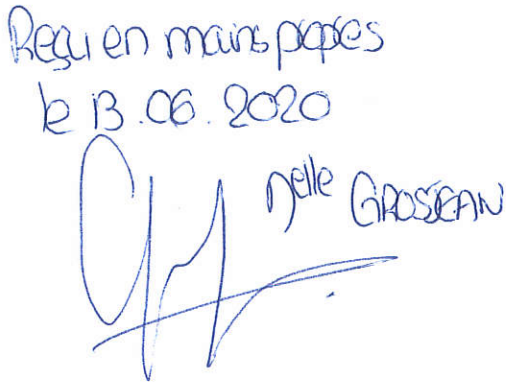 Reçu en mains propres
le 13.06.2020
Melle GROSJEAN